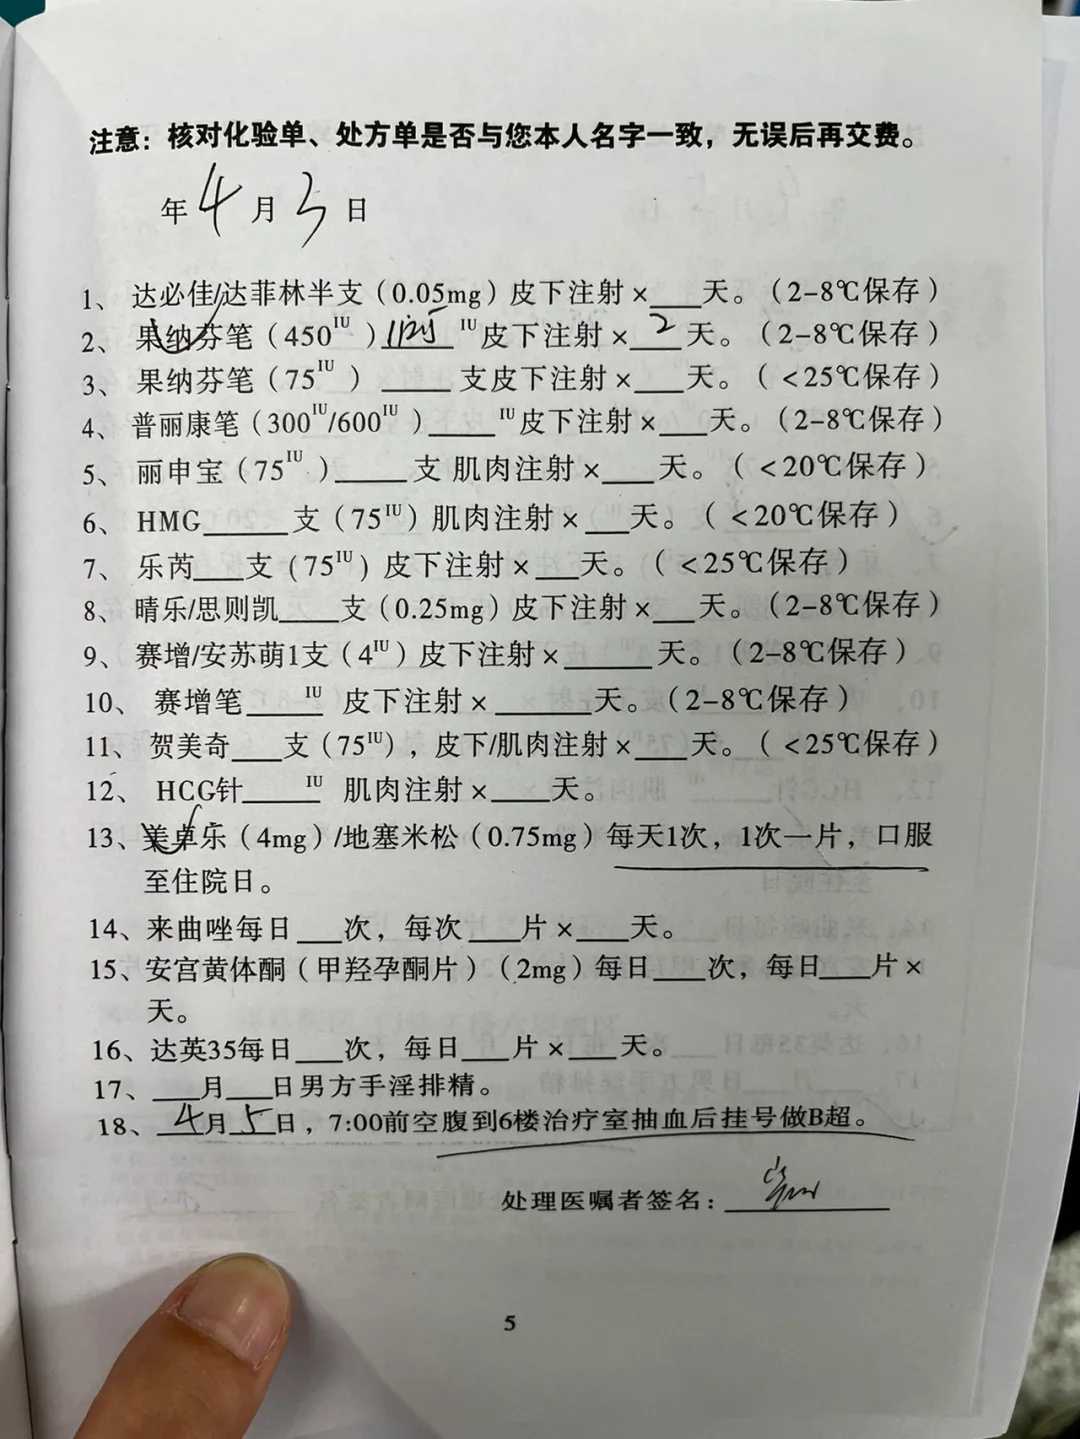 注意：核对化验单、处方单是否与您本人名字一致，无误后再交费。
年 4 月 3 日
1、达必佳/达菲林半支（0.05mg）皮下注射×___天。（2-8℃保存）
2、果纳芬笔（450IU）____IU皮下注射×_2_天。（2-8℃保存）
3、果纳芬笔（75IU）____支皮下注射×___天。（<25℃保存）
4、普丽康笔（300IU/600IU）____IU皮下注射×___天。（2-8℃保存）
5、丽申宝（75IU）____支 肌肉注射×___天。（<20℃保存）
6、HMG_____支（75IU）肌肉注射×___天。（<20℃保存）
7、乐芮___支（75IU）皮下注射×___天。（<25℃保存）
8、晴乐/思则凯____支（0.25mg）皮下注射×___天。（2-8℃保存）
9、赛增/安苏萌1支（4IU）皮下注射×_____天。（2-8℃保存）
10、赛增笔_____IU 皮下注射×______天。（2-8℃保存）
11、贺美奇___支（75IU），皮下/肌肉注射×___天。（<25℃保存）
12、HCG针_____IU 肌肉注射×____天。
13、美卓乐（4mg）/地塞米松（0.75mg）每天1次，1次一片，口服
至住院日。
14、来曲唑每日___次，每次___片×___天。
15、安宫黄体酮（甲羟孕酮片）（2mg）每日___次，每日___片×
天。
16、达英35每日___次，每日___片×___天。
17、___月___日男方手淫排精。
18、_4_月_5_日，7:00前空腹到6楼治疗室抽血后挂号做B超。
处理医嘱者签名：
5